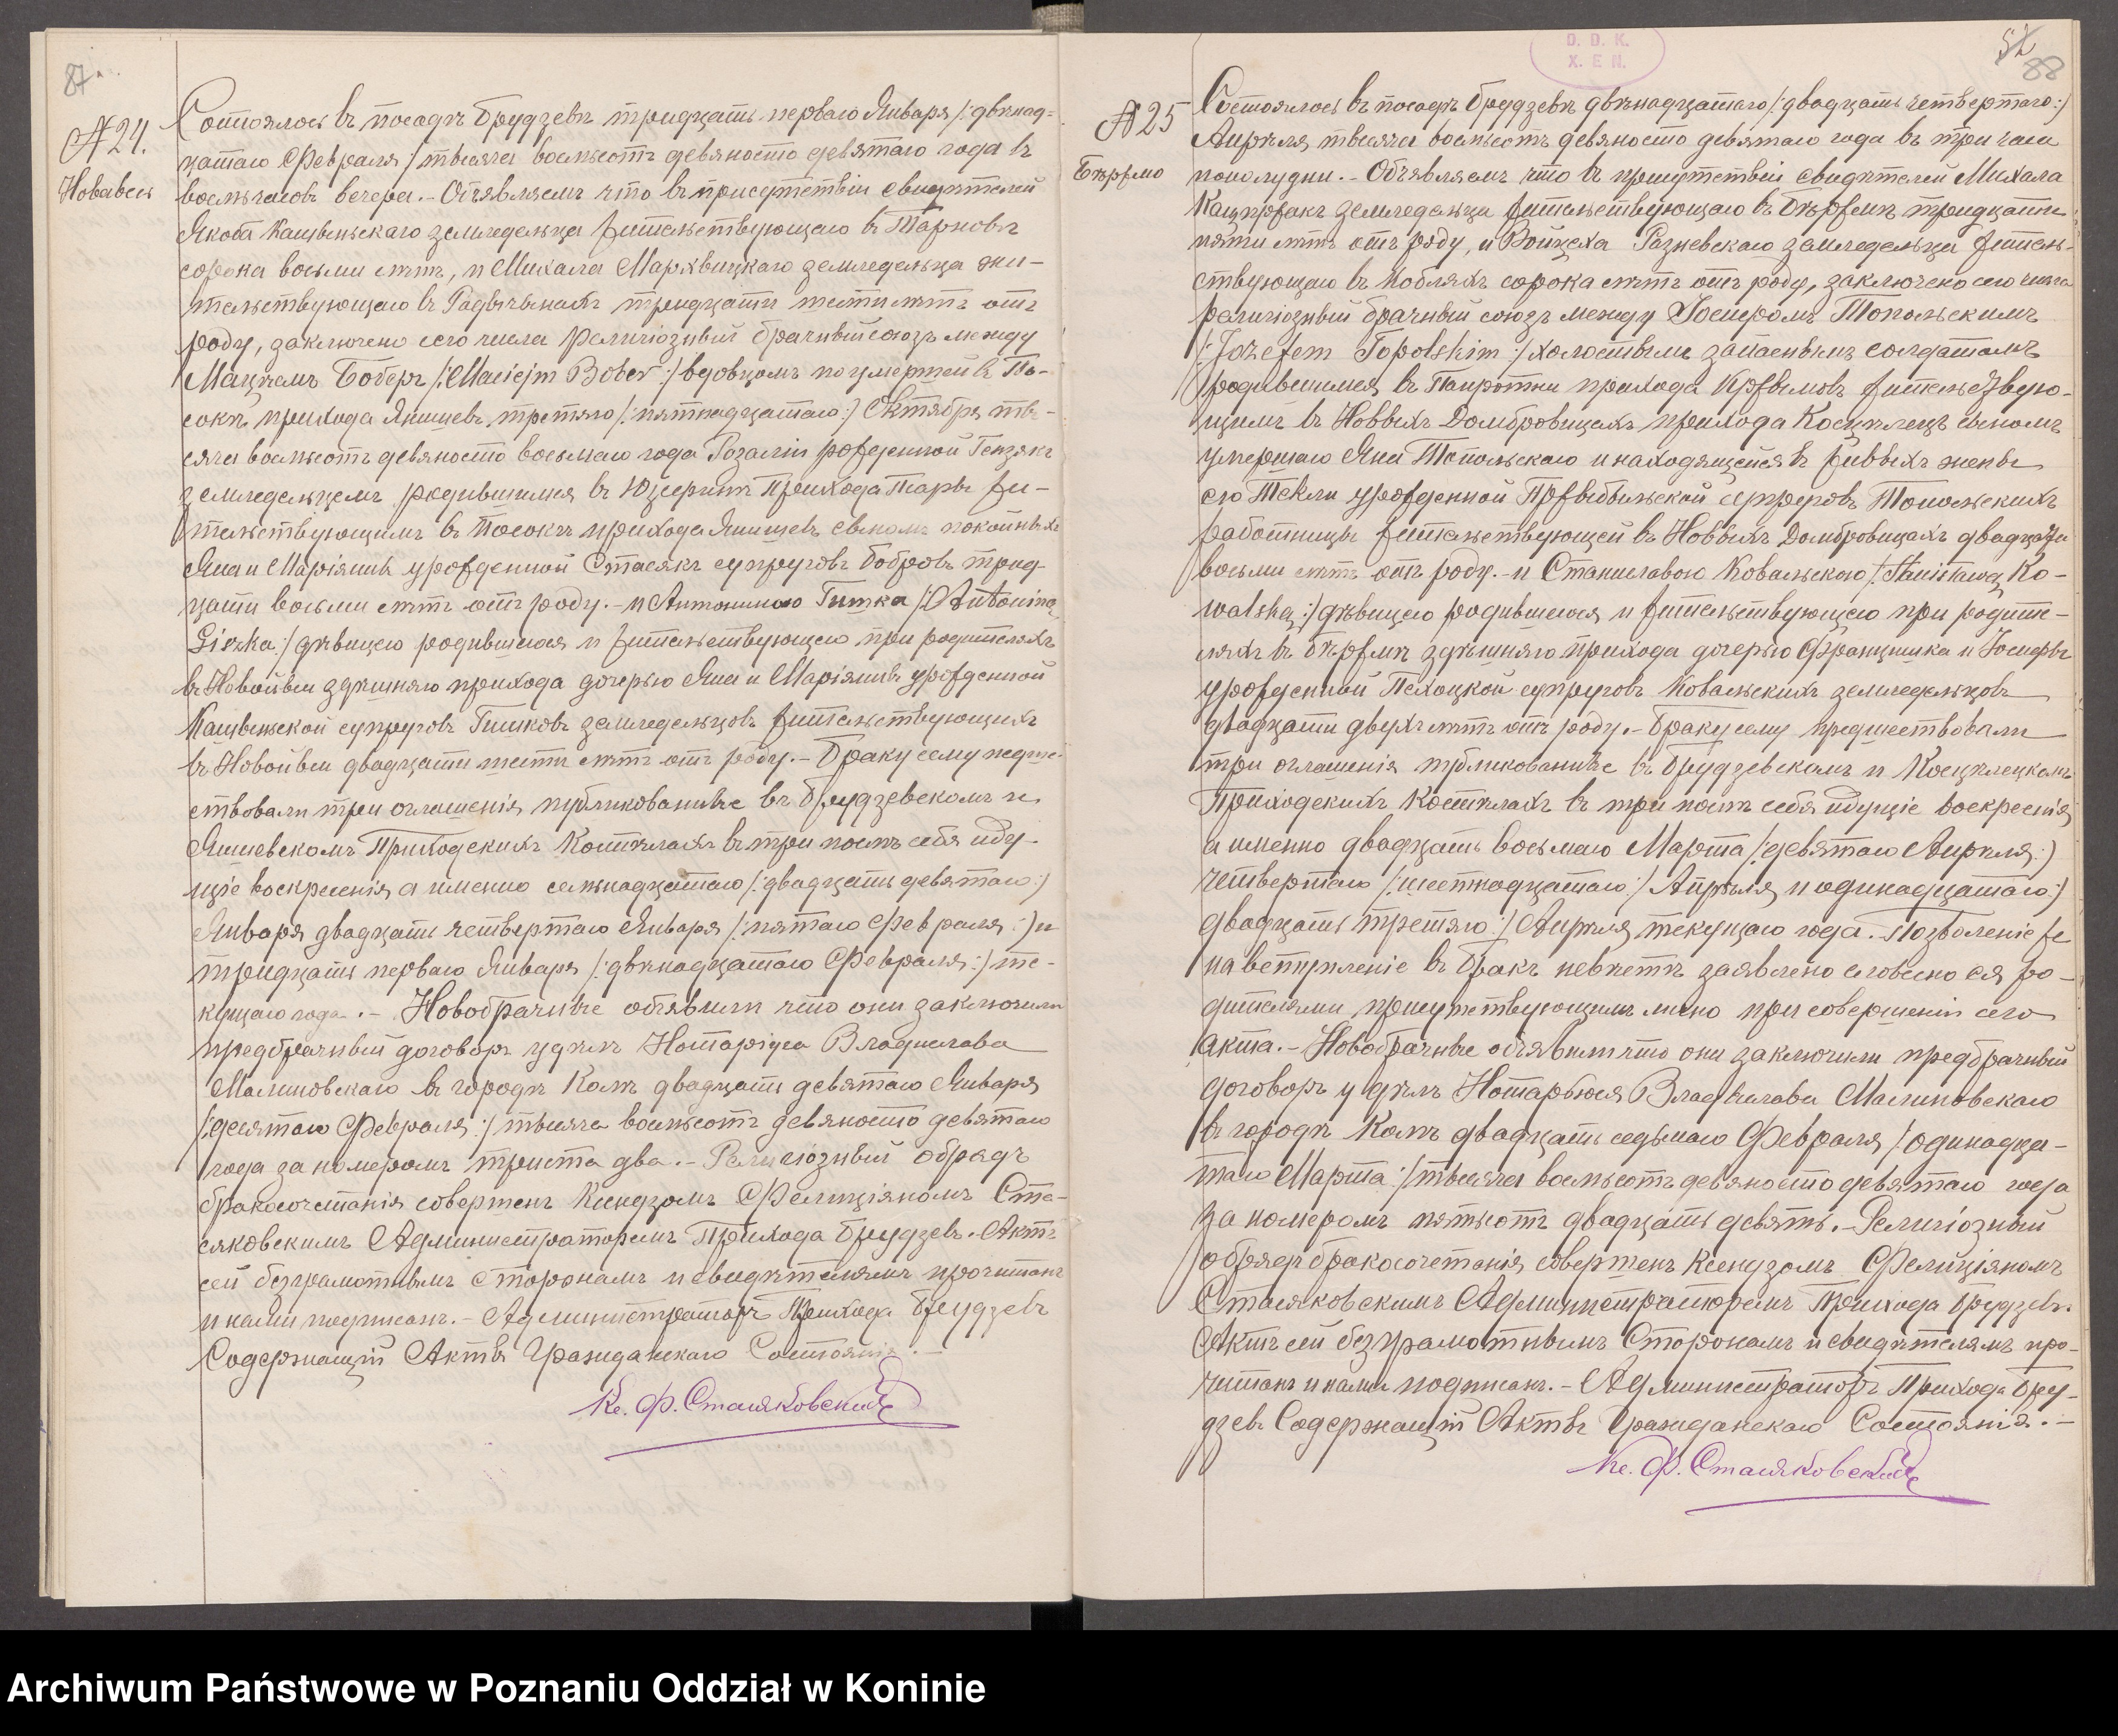 87
№ 24.
Новавесь
Состоялось въ посадѣ Брудзевѣ тридцать перваго Января /:двѣнад-
цатаго Февраля/ тысяча восемьсотъ девяносто девятаго года въ
восемь часовъ вечера. – Объявляемъ что въ присутствіи свидѣтелей
Якова Кащыньскаго земледельца жительствующаго въ Тарновѣ
сорока восьми лѣтъ, и Михала Мархвицкаго земледельца жи-
тельствующаго въ тридцати шести лѣтъ отъ
роду, заключено сего числа религіозный брачный союзъ между
Маціемъ Боберъ /:Maciejm Bober:/ вдовцомъ по умершей въ По-
сокѣ прихода Янишевъ третяго /:пятнадцатаго:/ Октября ты-
сяча восемьсотъ девяносто восьмаго года Розаліи рожденной
земледельцемъ родившимся въ прихода жи-
тельствующимъ въ Посокѣ прихода Янишевъ сыномъ покойныхъ
Яна и Маріянны урожденной Стасякъ супруговъ Бобровъ трид-
цати восьми лѣтъ отъ роду. – и Антониною Гишка /:Antoniną
Giszka:/ дѣвицею родившеюся и жительствующею при родителяхъ
въ Новойвси здѣшняго прихода дочерью Яна и Маріянны урожденной
Кащыньской супруговъ Гишковъ земледельцовъ жительствующихъ
въ Новойвси двадцати шести лѣтъ отъ роду. – Браку сему предше-
ствовали три оглашенія публикованные въ Брудзевскомъ и
Янишевскомъ Приходскихъ Костёлахъ въ три послѣ себя иду-
щіе воскресенія а именно семьнадцатаго /:двадцать девятаго:/
Января двадцати четвертаго Января /:пятаго Февраля:/ и
тридцать перваго Января /:двѣнадцатаго Февраля:/ те-
кущаго года. – Новобрачные объявили что они заключили
предбрачный договоръ у дѣлъ Нотаріуса Владислава
Малиновскаго въ городѣ Колѣ двадцать девятаго Января
/:десятаго Февраля:/ тысяча восемьсотъ девяносто девятаго
года за номеромъ триста два. – Религіозный обрядъ
бракосочетанія совершенъ Ксендзомъ Фелиціяномъ Ста-
сяковскимъ Администраторомъ Прихода Брудзевъ. – Актъ
сей безграмотнымъ Сторонамъ и свидѣтелямъ прочитанъ
и нами подписанъ. – Администраторъ Прихода Брудзевъ
Содержащій Акты Гражданскаго Состоянія. –
Кс. Ф. Стасяковскій
D. D. K.
X. E N.
52
88
№ 25
Бержмо
Состоялось въ посадѣ Брудзевѣ двѣнадцатаго /:двадцать четвертаго:/
Апрѣля тысяча восемьсотъ девяносто девятаго года въ три часа
пополудни. – Объявляемъ что въ присутствіи свидѣтелей Михала
Кацпржакъ земледельца жительствующаго въ тридцати
пяти лѣтъ отъ роду, и Войцеха Разневскаго земледельца житель-
ствующаго въ Кобляхъ сорока лѣтъ отъ роду, заключено сего числа
религіозный брачный союзъ между Іосифомъ Топольскимъ
/:Józefem Topolskim:/ холостымъ запаснымъ солдатомъ
родившимся въ Папротни прихода Кржымовъ жительствую-
щимъ въ Новыхъ Домбровицахъ прихода Косцѣлецъ сыномъ
умершаго Яна Топольскаго и находящейся въ живыхъ жены
его Текли урожденной Пржыбыльской супруговъ Топольскихъ
работницы жительствующей въ Новыхъ Домбровицахъ двадцати
восьми лѣтъ отъ роду. – и Станиславою Ковальскою /:Stanisławą Ko-
walską:/ дѣвицею родившеюся и жительствующею при родите-
ляхъ въ здѣшняго прихода дочерью Францишка и Іосифы
урожденной супруговъ Ковальскихъ земледельцовъ
двадцати двухъ лѣтъ отъ роду. – Браку сему предшествовали
три оглашенія публикованные въ Брудзевскомъ и Косцѣлецкомъ
Приходскихъ Костёлахъ въ три послѣ себя идущіе воскресенія
а именно двадцать восьмаго Марта /:девятаго Апрѣля:/
четвертаго /:шестнадцатаго:/ Апрѣля и одинадцатаго:/
двадцать третяго:/ Апрѣля текущаго года. – Позволеніе же
на вступленіе въ бракъ невѣстѣ заявлено словесно ея ро-
дителями присутствующими лично при совершеніи сего
акта. – Новобрачные объявили что они заключили предбрачный
договоръ у дѣлъ Нотарыюса Владыслава Малиновскаго
въ городѣ Колѣ двадцать седьмаго Февраля /:одинадца-
таго Марта:/ тысяча восемьсотъ девяносто девятаго года
за номеромъ пятьсотъ двадцать девять. – Религіозный
обрядъ бракосочетанія совершенъ Ксендзомъ Фелиціяномъ
Стасяковскимъ Администраторемъ Прихода Брудзевъ.
Актъ сей безграмотнымъ Сторонамъ и свидѣтелямъ про-
читанъ и нами подписанъ. – Администраторъ Прихода Бру-
дзевъ Содержащій Акты Гражданскаго Состоянія. –
Кс. Ф. Стасяковскій
Archiwum Państwowe w Poznaniu Oddział w Koninie